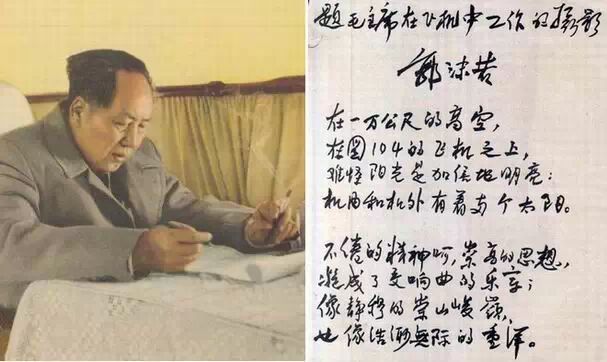 题毛主席在飞机中工作的摄影
郭沫若
在一万公尺的高空,
在图104的飞机之上,
难怪阳光是加倍地明亮:
机内和机外有着两个太阳。
不倦的精神呵,崇高的思想,
凝成了交响曲的乐章;
像静穆的崇山峻岭,
也像浩渺無际的重洋。